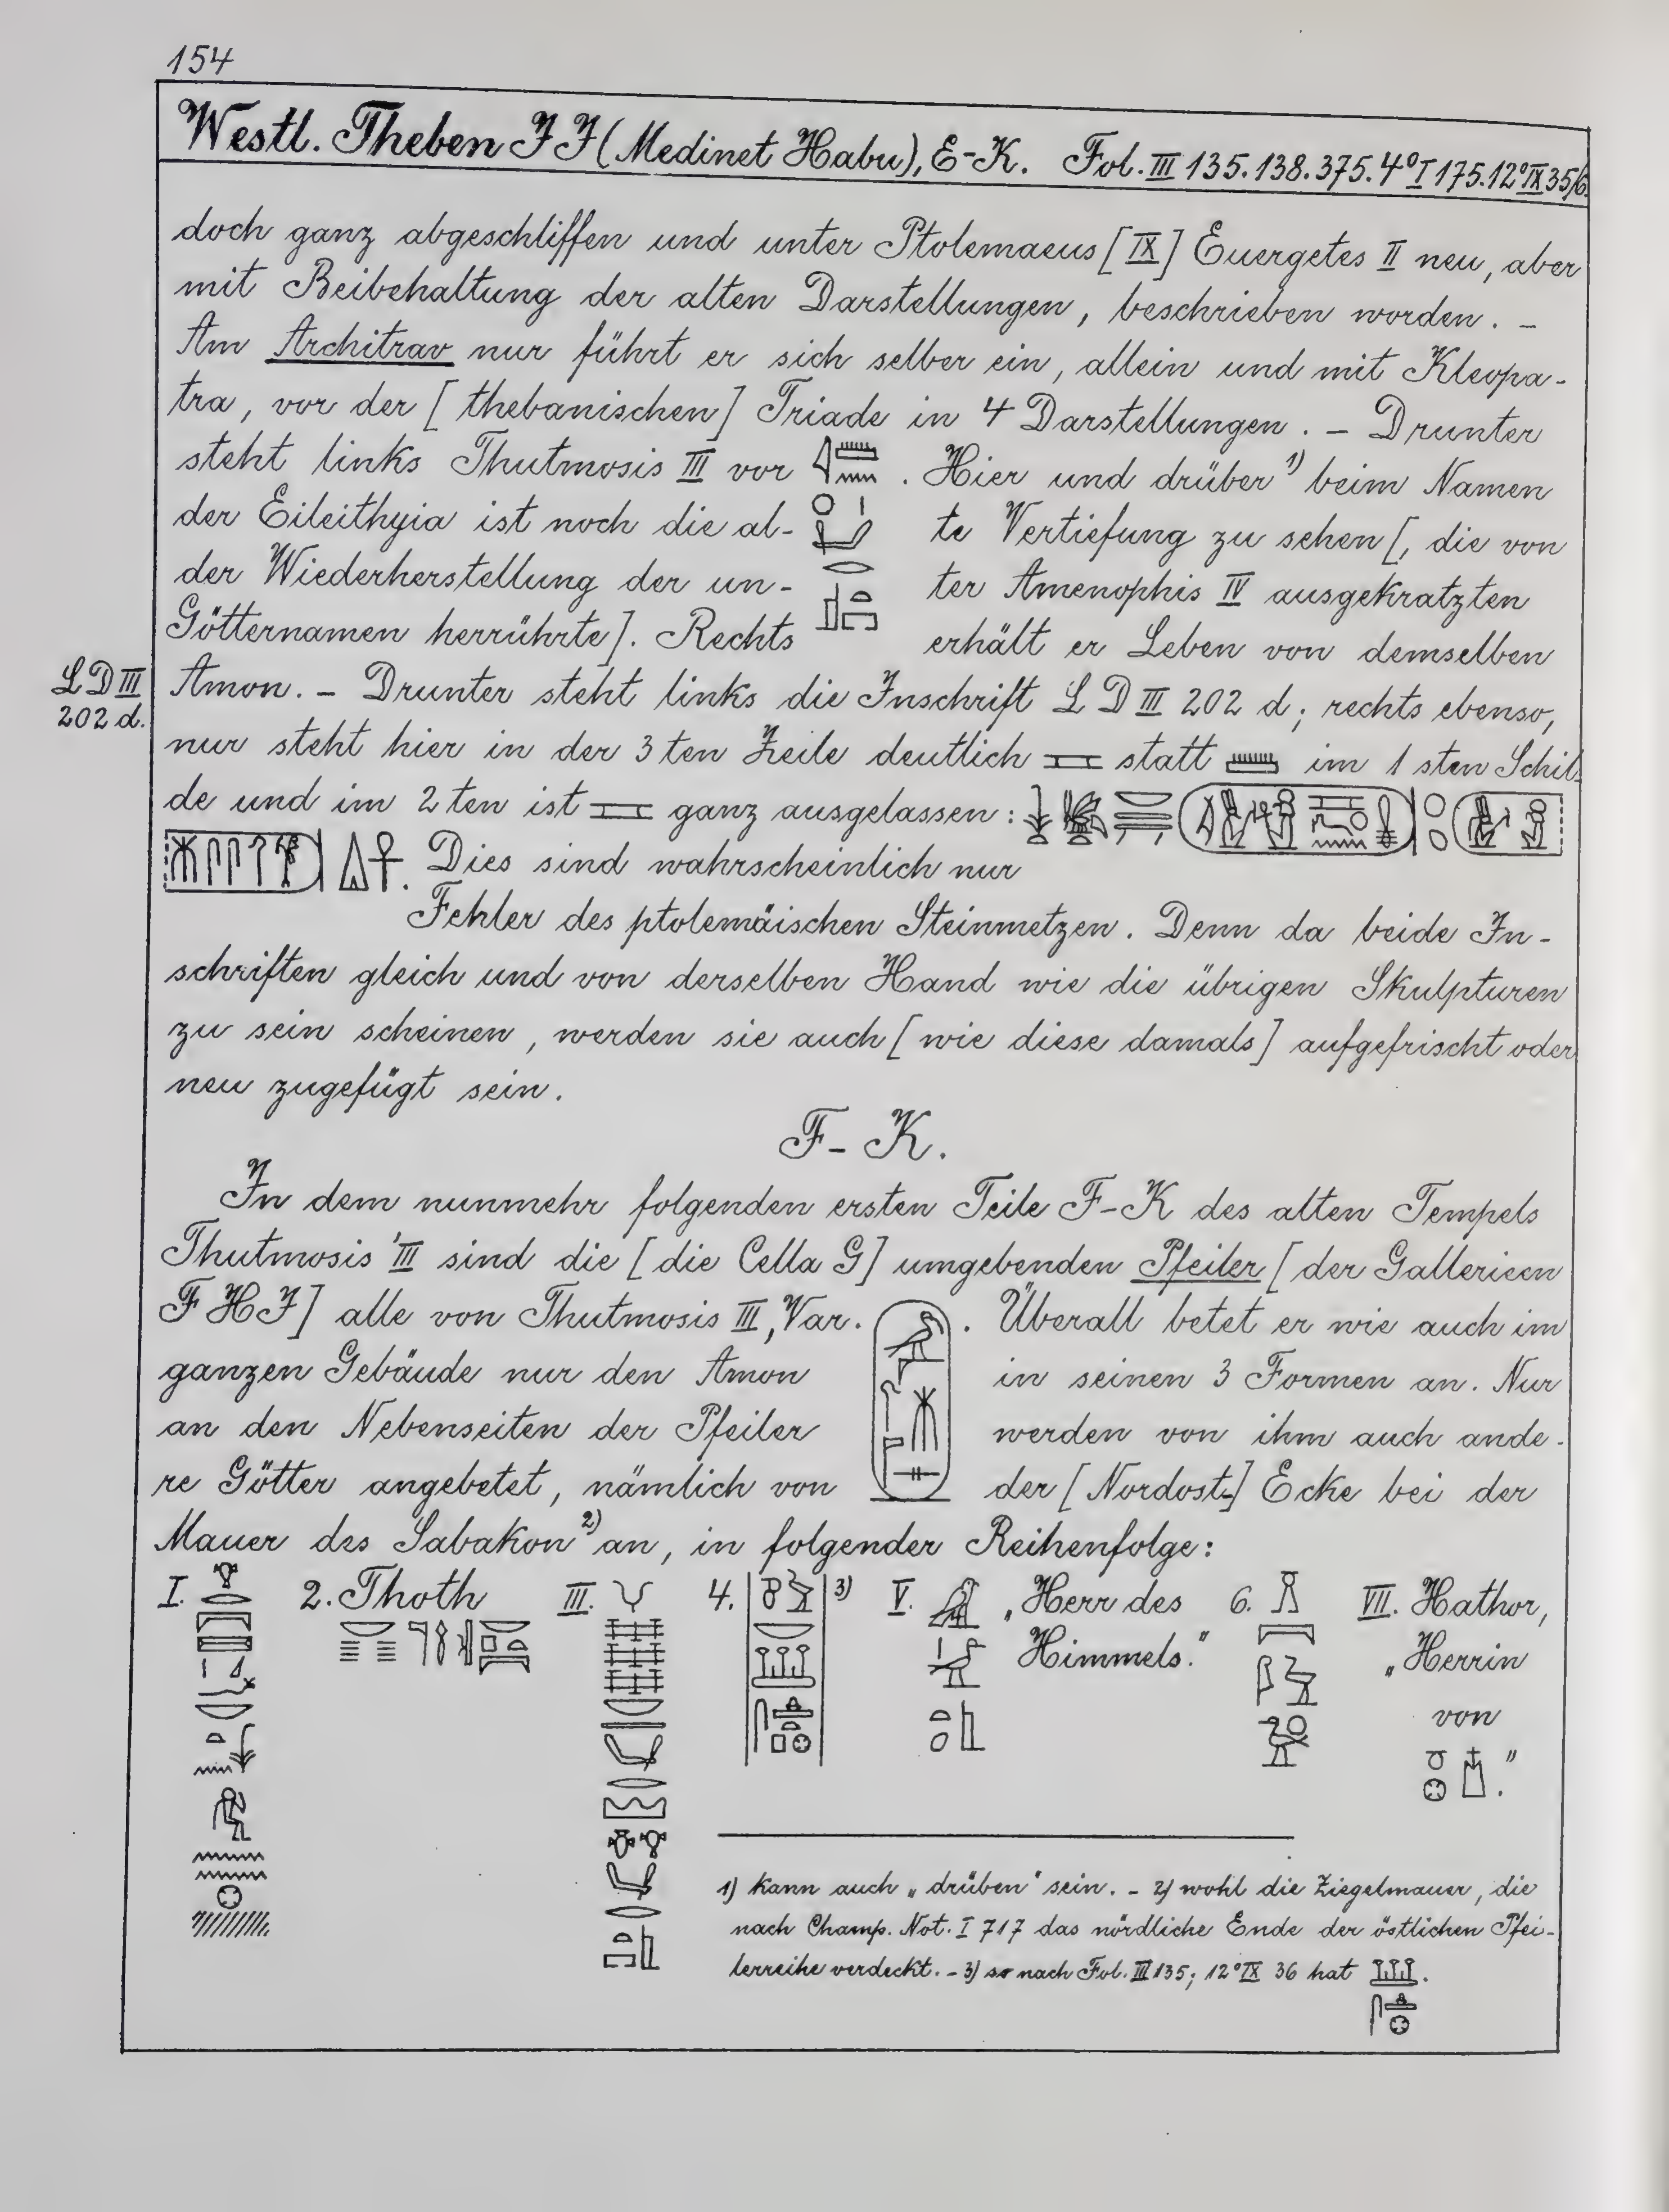 154
Westl. Theben II (Medinet Habu), E-K. Fol. III 135. 138. 375. 4° I 175. 12° IX 35/6.
doch ganz abgeschliffen und unter Ptolemaeus [IX] Euergetes II neu, aber
mit Beibehaltung der alten Darstellungen, beschrieben worden. –
Am Architrav nur führt er sich selber ein, allein und mit Kleopa-
tra, vor der [thebanischen] Triade in 4 Darstellungen. – Drunter
steht links Thutmosis III vor . Hier und drüber 1) beim Namen
der Eileithyia ist noch die al- te Vertiefung zu sehen [, die von
der Wiederherstellung der un- ter Amenophis IV ausgekratzten
Götternamen herrührte]. Rechts erhält er Leben von demselben
LD III
202 d.
Amon. – Drunter steht links die Inschrift LD III 202 d; rechts ebenso,
nur steht hier in der 3 ten Zeile deutlich statt im 1 sten Schil-
de und im 2 ten ist ganz ausgelassen:
Dies sind wahrscheinlich nur
Fehler des ptolemäischen Steinmetzen. Denn da beide In-
schriften gleich und von derselben Hand wie die übrigen Skulpturen
zu sein scheinen, werden sie auch [wie diese damals] aufgefrischt oder
neu zugefügt sein.
F – K.
In dem nunmehr folgenden ersten Teile F-K des alten Tempels
Thutmosis' III sind die [die Cella G] umgebenden Pfeiler [der Gallerieen
F H I] alle von Thutmosis III, Var. . Überall betet er wie auch im
ganzen Gebäude nur den Amon in seinen 3 Formen an. Nur
an den Nebenseiten der Pfeiler werden von ihm auch ande-
re Götter angebetet, nämlich von der [Nordost-] Ecke bei der
Mauer des Sabakon 2) an, in folgender Reihenfolge:
I. 2. Thoth III. 4. 3) V. „Herr des 6. VII. Hathor,
Himmels." „Herrin
von
."
1) kann auch „drüben" sein. – 2) wohl die Ziegelmauer, die
nach Champ. Not. I 717 das nördliche Ende der östlichen Pfei-
lerreihe verdeckt. – 3) so nach Fol. III 135; 12° IX 36 hat .